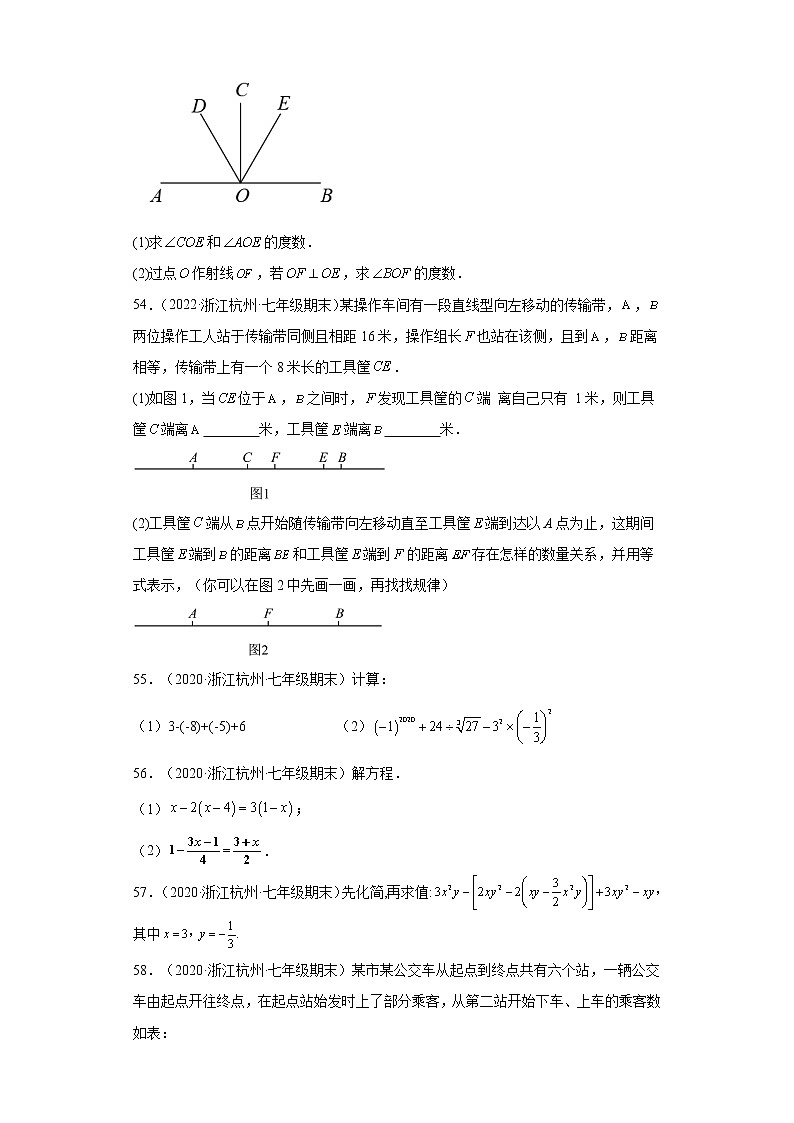 C
D E
A O B
(1)求∠COE和∠AOE的度数．
(2)过点O作射线OF，若OF⊥OE，求∠BOF的度数．
54．（2022·浙江杭州·七年级期末）某操作车间有一段直线型向左移动的传输带，A，B
两位操作工人站于传输带同侧且相距16米，操作组长F也站在该侧，且到A，B距离
相等，传输带上有一个8米长的工具筐CE．
(1)如图1，当CE位于A，B之间时，F发现工具筐的C端 离自己只有 1米，则工具
筐C端离A ________米，工具筐E端离B ________米．
A C F E B
图1
(2)工具筐C端从B点开始随传输带向左移动直至工具筐E端到达以A点为止，这期间
工具筐E端到B的距离BE和工具筐E端到F的距离EF存在怎样的数量关系，并用等
式表示，（你可以在图2中先画一画，再找找规律）
A F B
图2
55．（2020·浙江杭州·七年级期末）计算：
（1）3-(-8)+(-5)+6 （2）(−1)^2020+24÷∛27−3²×(−1/3)²
56．（2020·浙江杭州·七年级期末）解方程．
（1）x−2(x−4)=3(1−x)；
（2）1−(3x−1)/4=(3+x)/2．
57．（2020·浙江杭州·七年级期末）先化简,再求值: 3x²y−[2xy²−2(xy−3/2x²y)]+3xy²−xy，
其中x=3，y=−1/3.
58．（2020·浙江杭州·七年级期末）某市某公交车从起点到终点共有六个站，一辆公交
车由起点开往终点，在起点站始发时上了部分乘客，从第二站开始下车、上车的乘客数
如表：